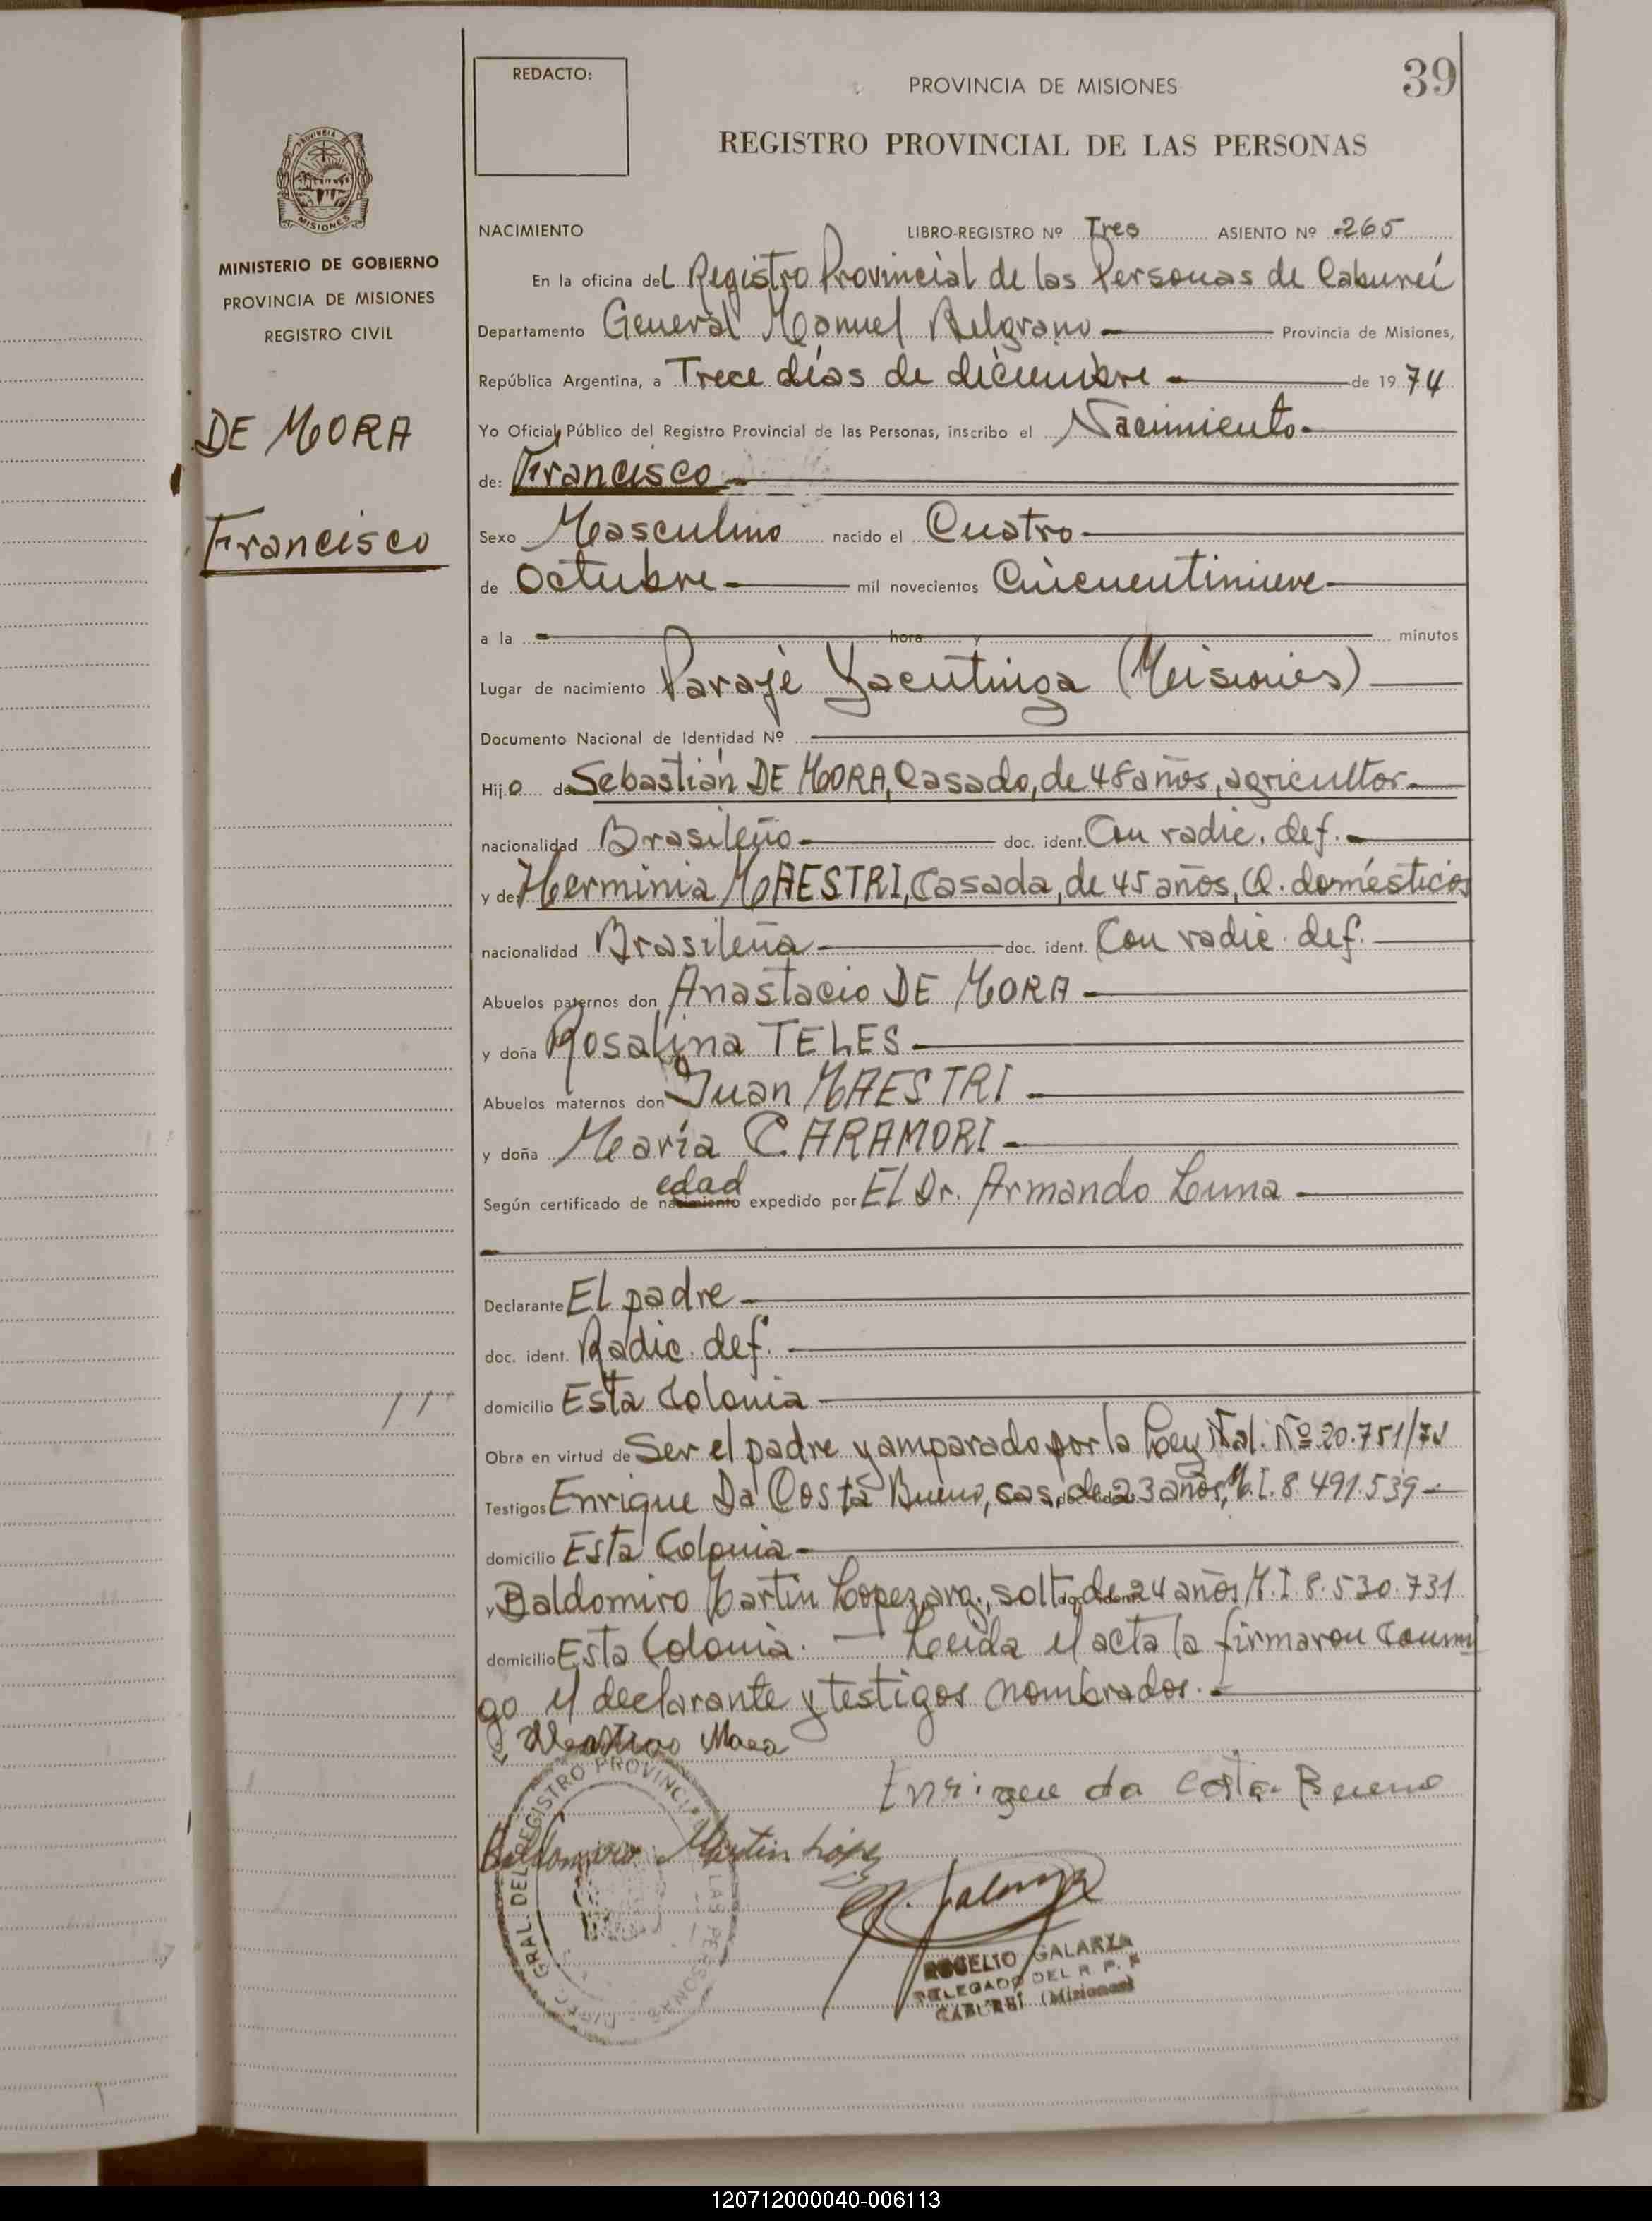 39
REDACTO:
PROVINCIA DE MISIONES
REGISTRO PROVINCIAL DE LAS PERSONAS
MISIONES
MINISTERIO DE GOBIERNO
PROVINCIA DE MISIONES
REGISTRO CIVIL
DE MORA
Francisco
NACIMIENTO LIBRO-REGISTRO Nº Tres ASIENTO Nº 265
En la oficina del Registro Provincial de las Personas de Cabureí
Departamento General Manuel Belgrano Provincia de Misiones,
República Argentina, a Trece días de diciembre de 1974
Yo Oficial Público del Registro Provincial de las Personas, inscribo el Nacimiento
de: Francisco
Sexo Masculino nacido el Cuatro
de Octubre mil novecientos Cincuentinueve
a la hora y minutos
Lugar de nacimiento Paraje Yacutinga (Misiones)
Documento Nacional de Identidad Nº
Hijo de Sebastián DE MORA, Casado, de 48 años, agricultor
nacionalidad Brasileño doc. ident. Con radic. def.
y de Herminia MAESTRI, Casada, de 45 años, Q. domésticos
nacionalidad Brasileña doc. ident. Con radic. def.
Abuelos paternos don Anastacio DE MORA
y doña Rosalina TELES
Abuelos maternos don Juan MAESTRI
y doña María CARAMORI
edad
Según certificado de nacimiento expedido por El Dr. Armando Luna
Declarante El padre
doc. ident. Radic. def.
domicilio Esta Colonia
Obra en virtud de Ser el padre y amparado por la Ley Nal. Nº 20.751/74
Testigos Enrique Da Costa Bueno, cas, de 23 años, M.I. 8.491.539
domicilio Esta Colonia
y Baldomiro Martin Lopez, arg., solt. de 24 años M.I 8.530.731
domicilio Esta Colonia. — Leida el acta la firmaron conmi
go el declarante y testigos nombrados.
Mora
Enrique da Costa Bueno
Baldomiro Martin López
R. Galarza
ROGELIO GALARZA
DELEGADO DEL R. P. P
CABUREÍ (Misiones)
DIREC. GRAL. DEL REGISTRO PROVINCIAL LAS PERSONAS
120712000040-006113